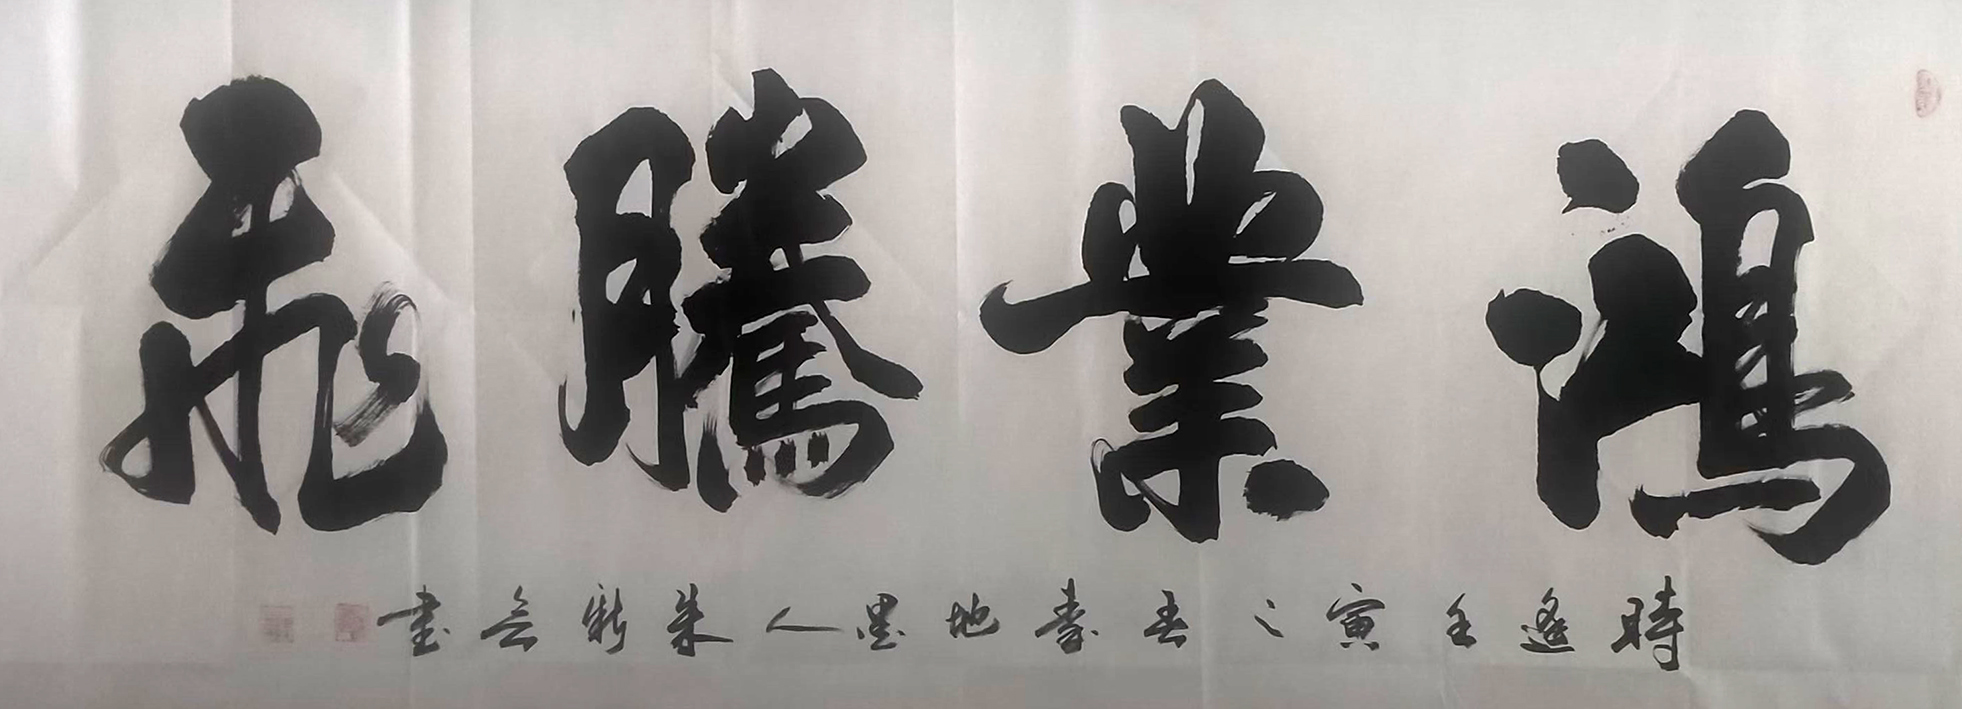 鴻業騰飛
時逢壬寅之春壽地墨人朱新云書